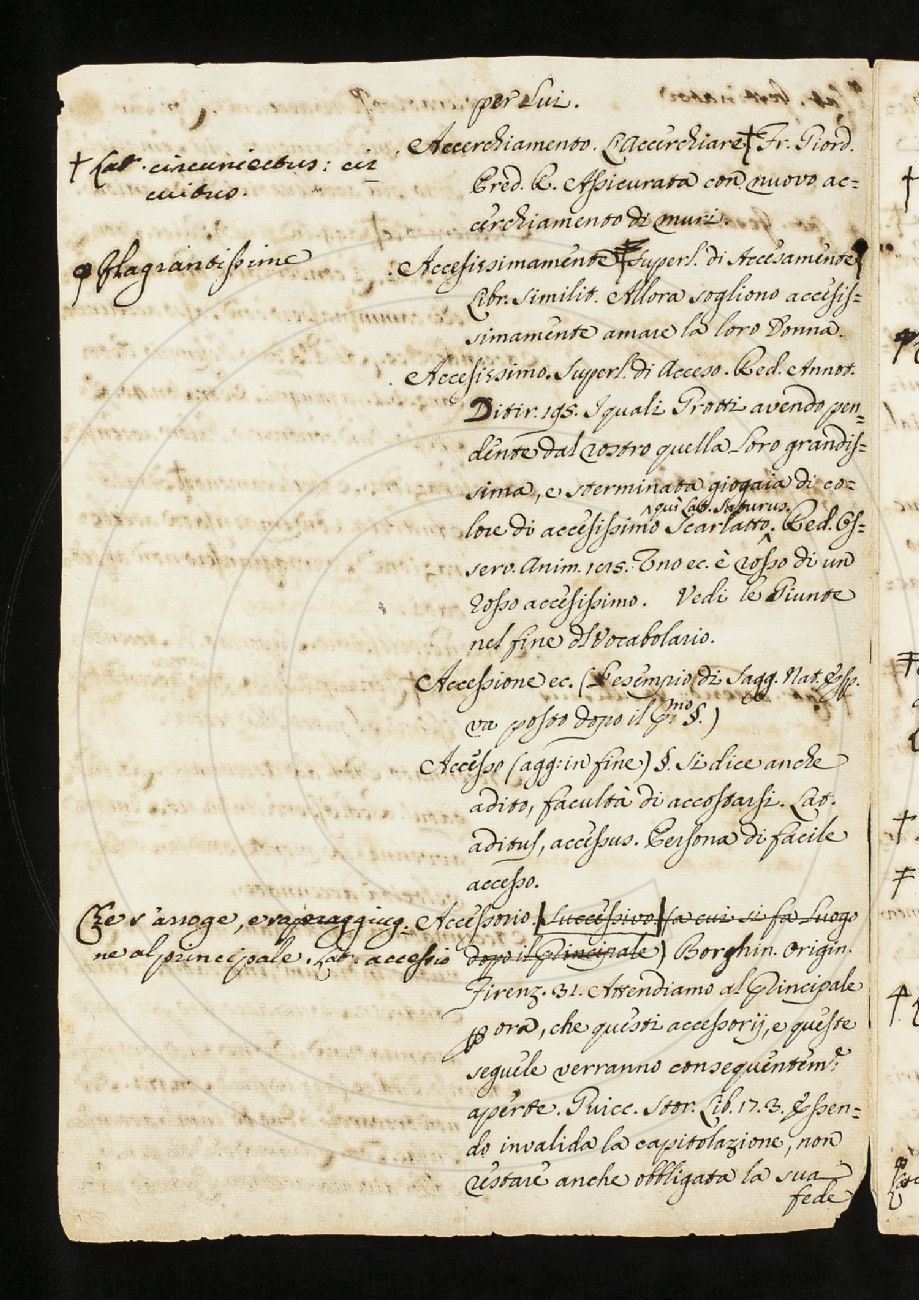 per Lui.
Accerchiamento. L'Accerchiare † Fr. Giord.
† Lat. circuniectus: cir-
cuitus.
Pred. R. Assicurata con nuovo ac=
cerchiamento di muri.
Accesissimamente Superl. di Accesamente
φ Flagrantissime
Libr. Similit. Allora sogliono accesis=
simamente amare la loro Donna.
Accesissimo. Superl. di Acceso. Red. Annot.
Ditir. 195. I quali Grotti avendo pen=
dente dal rostro quella Loro grandis=
sima, e sterminata giogaia di co=
^ qui Lat. saturus.
lore di accesissimo Scarlatto. Red. Os=
serv. Anim. Uno ec. è rosso di un
rosso accesissimo. Vedi le Giunte
nel fine dl Vocabolario.
Accessione ec. (L'esempio di Sagg. Nat. Esp.
va posto dopo il pr.mo §.)
Accesso (agg: in fine) §. Si dice anche
adito, facultà di accostarsi. Lat.
aditus, accessus. Persona di facile
accesso.
Accessorio. Successivo (a cui si fa Luogo
Che s'arroge, e sopraggiug=
ne al principale. Lat. accessio
dopo il Principale) Borghin. Origin.
Firenz. 31. Attendiamo al Principale
p ora, che questi accessorij, e queste
seguele verranno conseguentem.e
aperte. Guicc. Stor. Lib. 17. 3. Essen=
do invalida la capitolazione, non
restare anche obbligata la sua
fede